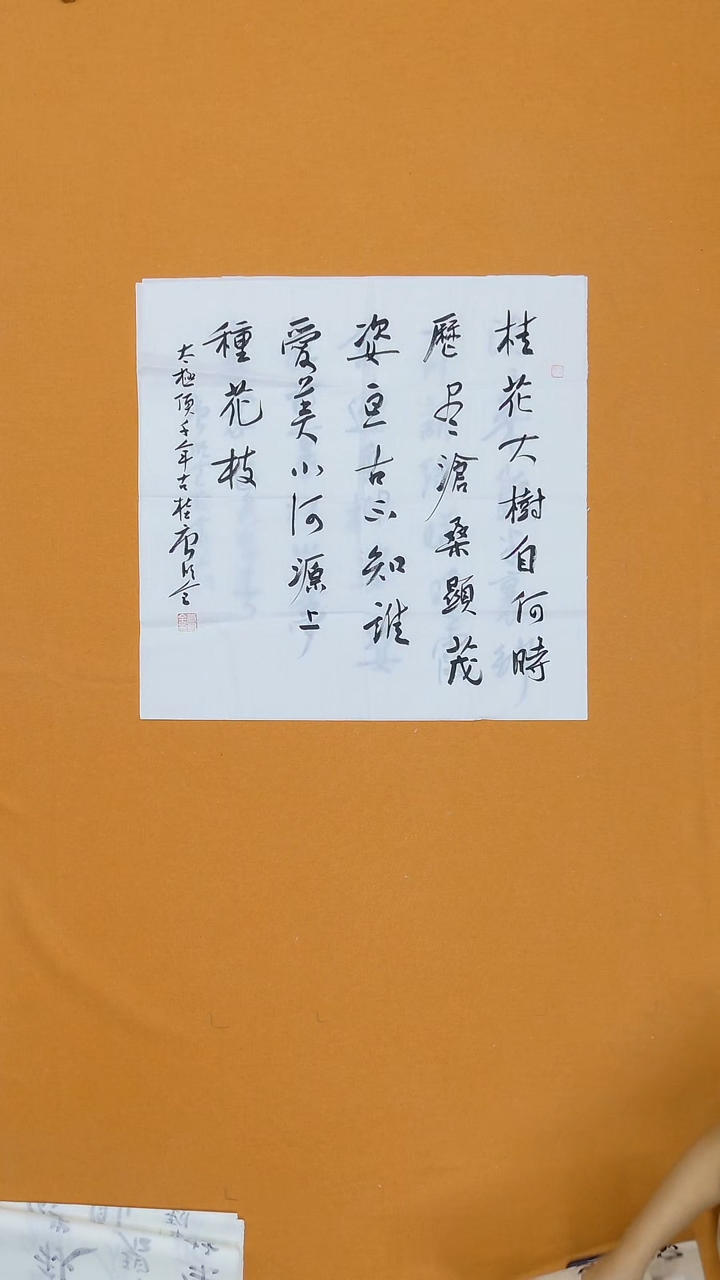 桂花大樹自何時
歷尽滄桑顯茂
姿亘古不知誰
愛美小河源上
種花枝
太極頂千年古桂